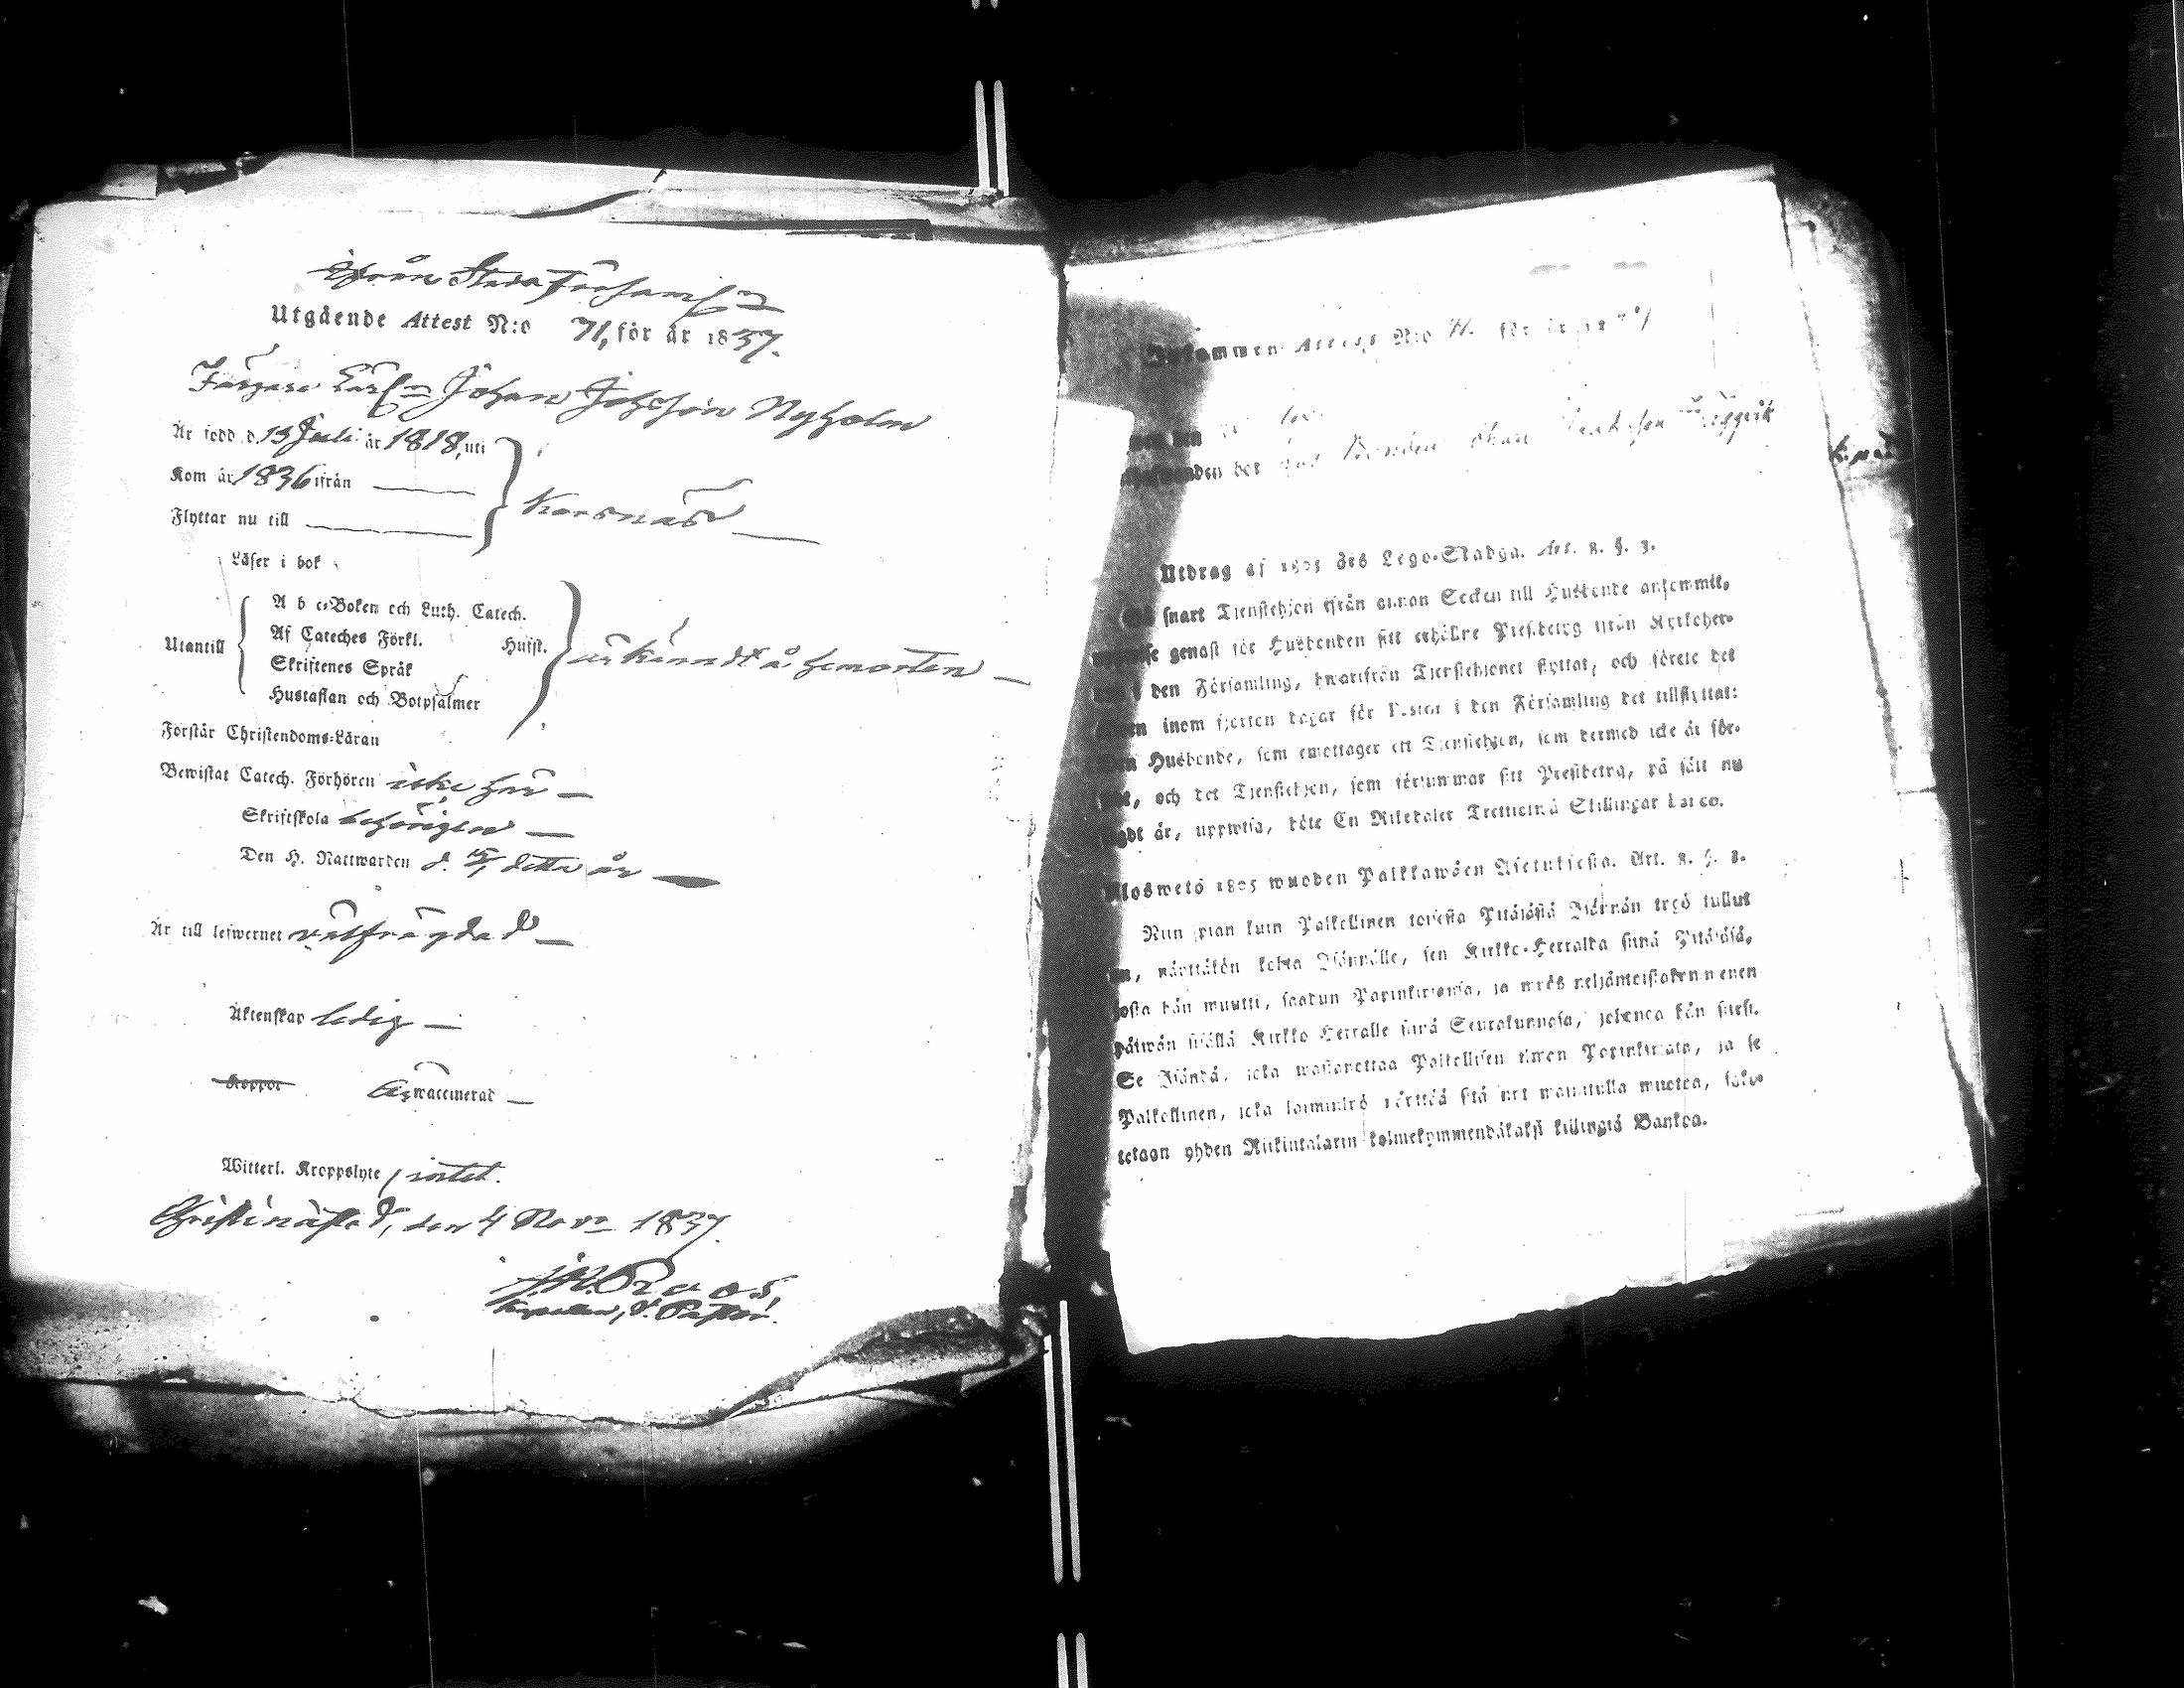 ifrån Stads Församl:n
Utgående Attest N:o 71, för år 1837.
Färgare Lärl:n Johan Johsson Nyholm
Är född d. 13 Juli år 1818, uti
Kom år 1836 ifrån
Flyttar nu till
Korsnäs
Läser i bok
Utantill
A b c-Boken och Luth. Catech.
Af Cateches Förkl. Husft.
Skriftenes Språk
Hustaflan och Botpsalmer
är kändt å hemorten
Förstår Christendoms-Läran
Bewistat Catech. Förhören icke här
Skriftskola behörigen
Den H. Nattwarden d. detta år
Är till lefwernet wälfrägdad
Äktenskap ledig
Koppor Är waccinerad
Witterl. Kroppslyte, intet.
Christinæstad, den 4 Nov. 1837.
Kapellan, V. Pastor.
Inkommen Attest N:o 71. för år 1837
Utdrag af 1805 års Lego-Stadga. Art. 8. §. 3.
snart Tjenstehjon ifrån annan Socken till Husbonde ankommit,
genast för Husbonden sitt erhållne Prestbetyg ifrån Kyrkoher-
den Församling, hwarifrån Tjenstehjonet flyttat, och förete det
inom fjorton dagar för Pastor i den Församling det tillflyttat:
Husbonde, som emottager ett Tjenstehjon, som dermed icke är för-
och det Tjenstehjon, som försummar sitt Prestbetyg, på sätt nu
är, uppwisa, böte En Riksdaler Trettiotwå Skillingar Banco.
Uloswetö 1805 wuoden Palkkawäen Asetuksesta. Art. 8. §. 3.
Niin pian kuin Palkollinen toisesta Pitäjästä Isännän työ tullut
on, näyttäkön kohta Isännälle, sen Kirkko-Herralda siinä Pitäjäsä,
josta hän muutti, saadun Papinkirjansa, ja myös neljäntoistakymmenen
päiwän sisällä Kirkko Herralle siinä Seurakunnasa, johonca hän siirsi.
Se Isändä, joka wastanottaa Palkollisen ilman Papinkirjata, ja se
Palkollinen, joka laiminlyö näyttää sitä nyt mainitulla muotoa, sako-
tetaan yhden Riikintalarin kolmekymmendäkaksi killingiä Bankoa.